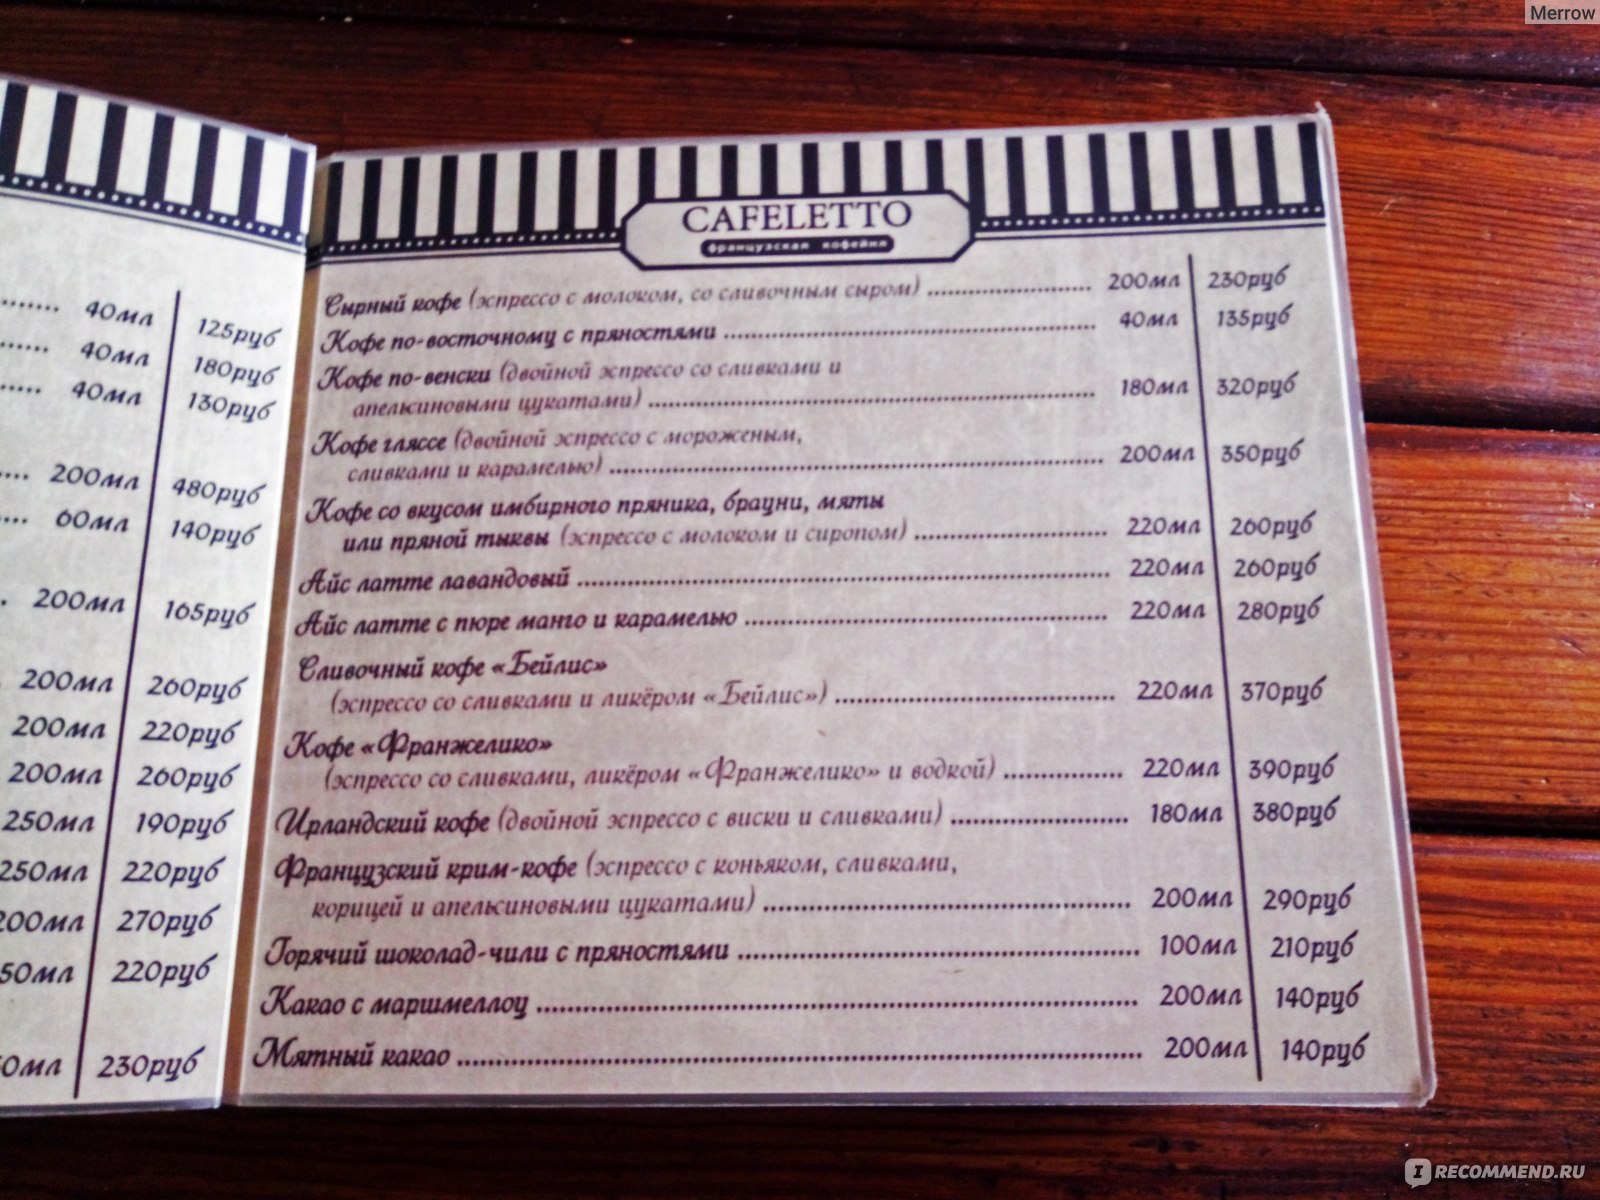 Merrow
40мл 125руб
40мл 180руб
40мл 130руб
200мл 480руб
60мл 140руб
200мл 165руб
200мл 260руб
200мл 220руб
200мл 260руб
250мл 190руб
250мл 220руб
200мл 270руб
50мл 220руб
0мл 230руб
CAFELETTO
французская кофейня
Сырный кофе (эспрессо с молоком, со сливочным сыром) 200мл 230руб
Кофе по-восточному с пряностями 40мл 135руб
Кофе по-венски (двойной эспрессо со сливками и
апельсиновыми цукатами) 180мл 320руб
Кофе гляссе (двойной эспрессо с мороженым,
сливками и карамелью) 200мл 350руб
Кофе со вкусом имбирного пряника, брауни, мяты
или пряной тыквы (эспрессо с молоком и сиропом) 220мл 260руб
Айс латте лавандовый 220мл 260руб
Айс латте с пюре манго и карамелью 220мл 280руб
Сливочный кофе «Бейлис»
(эспрессо со сливками и ликёром «Бейлис») 220мл 370руб
Кофе «Франжелико»
(эспрессо со сливками, ликёром «Франжелико» и водкой) 220мл 390руб
Ирландский кофе (двойной эспрессо с виски и сливками) 180мл 380руб
Французский крим-кофе (эспрессо с коньяком, сливками,
корицей и апельсиновыми цукатами) 200мл 290руб
Горячий шоколад-чили с пряностями 100мл 210руб
Какао с маршмеллоу 200мл 140руб
Мятный какао 200мл 140руб
IRECOMMEND.RU